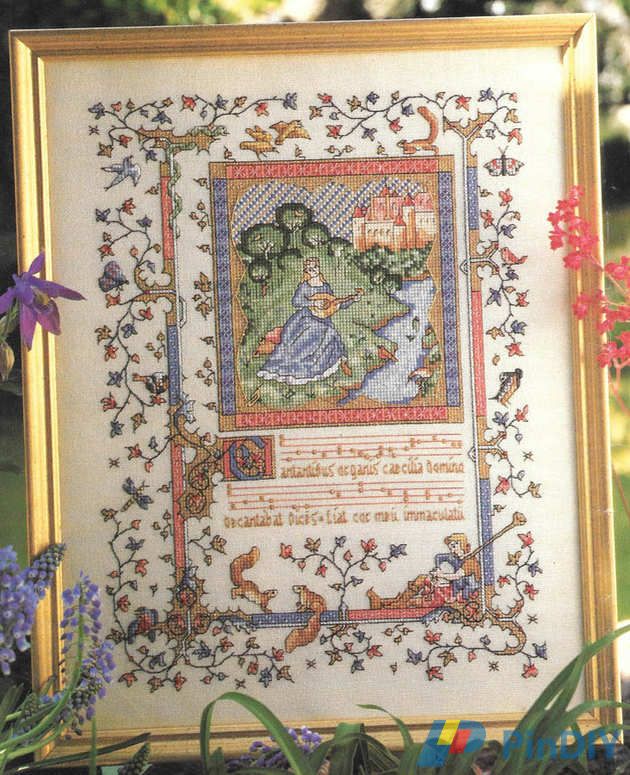 Cantantibus organis caecilia Domino
Decantabat Dices - Fiat cor meii immaculatii
PinDIY